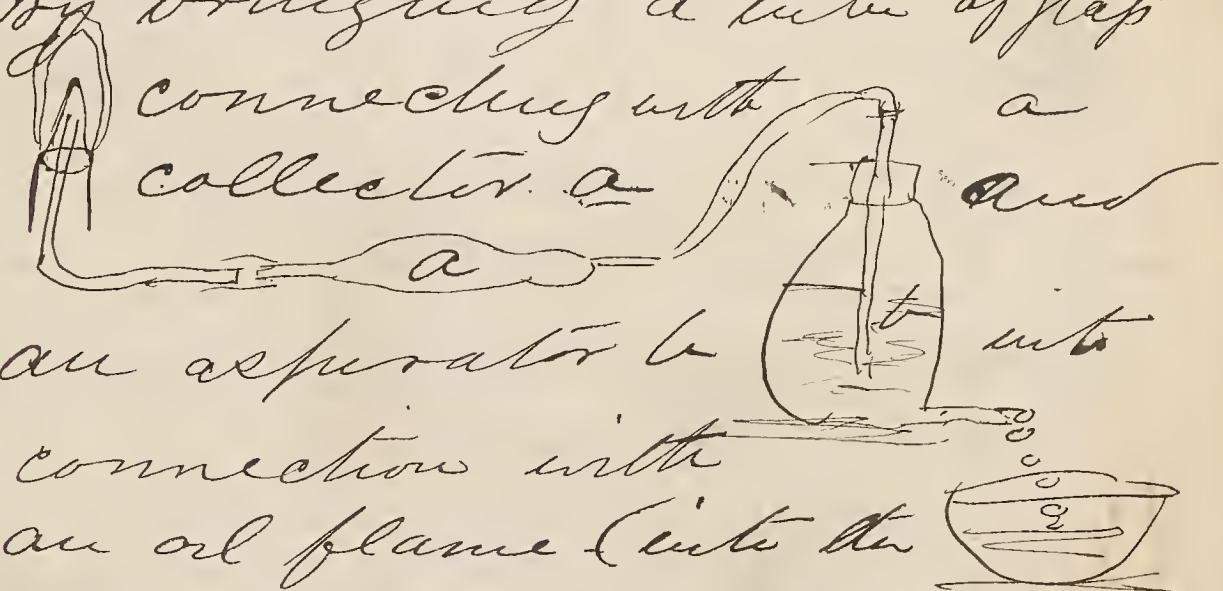 by bringing a tube of glass
connecting with a
collector a and
a
b
an aspirator b into
connection with
an oil flame (into the